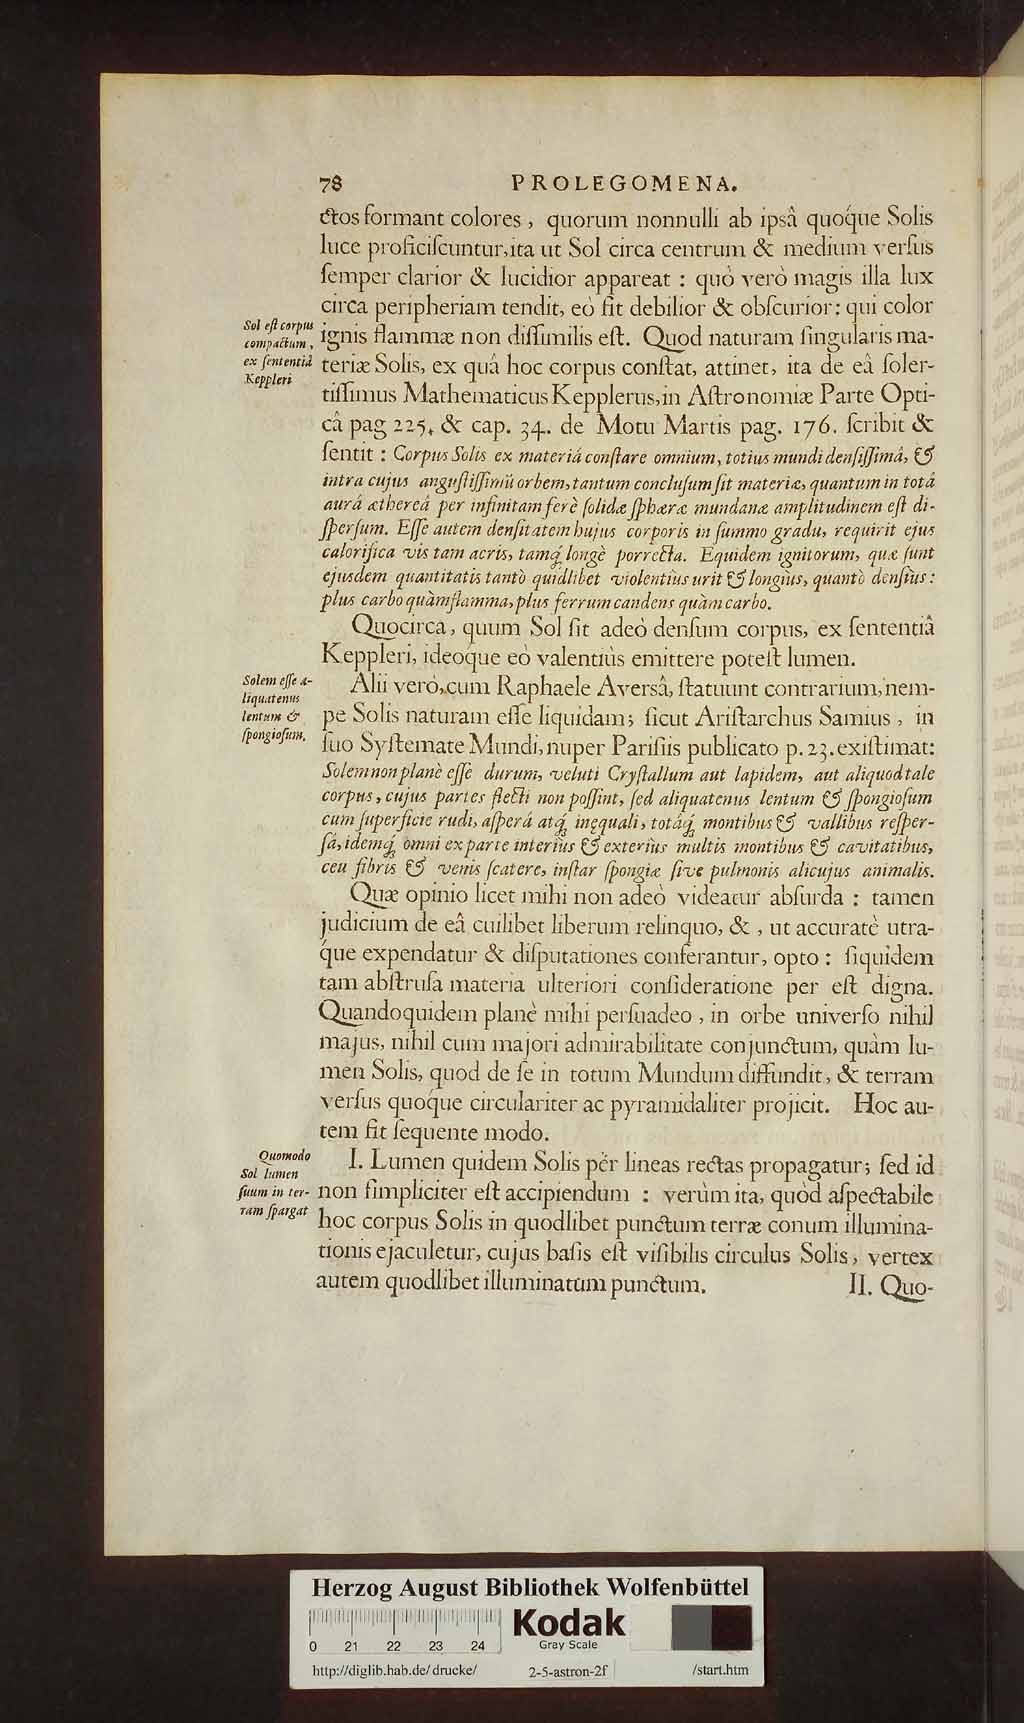 78 PROLEGOMENA.
ctos formant colores, quorum nonnulli ab ipsâ quoq́ue Solis
luce proficiſcuntur, ita ut Sol circa centrum & medium verſus
ſemper clarior & lucidior appareat : quò verò magis illa lux
circa peripheriam tendit, eò fit debilior & obſcurior: qui color
Sol eſt corpus
compactum,
ex ſententiâ
Keppleri
ignis flammæ non diſſimilis eſt. Quod naturam ſingularis ma-
teriæ Solis, ex quâ hoc corpus conſtat, attinet, ita de eâ ſoler-
tiſſimus Mathematicus Kepplerus, in Aſtronomiæ Parte Opti-
câ pag 225, & cap. 34. de Motu Martis pag. 176. ſcribit &
ſentit : Corpus Solis ex materiâ conſtare omnium, totius mundi denſiſſimâ, &
intra cujus anguſtiſſimũ orbem, tantum concluſum ſit materiæ, quantum in totâ
aurâ æthereâ per infinitam ferè ſolidæ ſphæræ mundanæ amplitudinem eſt di-
ſperſum. Eſſe autem denſitatem hujus corporis in ſummo gradu, requirit ejus
calorifica vis tam acris, tamq́; longè porrecta. Equidem ignitorum, quæ ſunt
ejusdem quantitatis tantò quidlibet violentiùs urit & longiùs, quantò denſiùs :
plus carbo quàm flamma, plus ferrum candens quàm carbo.
Quocirca, quum Sol ſit adeò denſum corpus, ex ſententiâ
Keppleri, ideoq́ue eò valentiùs emittere poteſt lumen.
Solem eſſe a-
liquatenus
lentum &
ſpongioſum.
Alii verò, cum Raphaele Averſâ, ſtatuunt contrarium, nem-
pe Solis naturam eſſe liquidam; ſicut Ariſtarchus Samius, in
ſuo Syſtemate Mundi, nuper Pariſiis publicato p. 23. exiſtimat:
Solem non planè eſſe durum, veluti Cryſtallum aut lapidem, aut aliquod tale
corpus, cujus partes flecti non poſſint, ſed aliquatenus lentum & ſpongioſum
cum ſuperficie rudi, aſperâ atq́; inęquali, totâq́; montibus & vallibus reſper-
ſâ, idemq́; omni ex parte interiùs & exteriùs multis montibus & cavitatibus,
ceu fibris & venis ſcatere, inſtar ſpongiæ ſive pulmonis alicujus animalis.
Quæ opinio licet mihi non adeò videatur abſurda : tamen
judicium de eâ cuilibet liberum relinquo, &, ut accuratè utra-
q́ue expendatur & diſputationes conferantur, opto : ſiquidem
tam abſtruſa materia ulteriori conſideratione per eſt digna.
Quandoquidem planè mihi perſuadeo, in orbe univerſo nihil
majus, nihil cum majori admirabilitate conjunctum, quàm lu-
men Solis, quod de ſe in totum Mundum diffundit, & terram
verſus quoq́ue circulariter ac pyramidaliter projicit. Hoc au-
tem fit ſequente modo.
Quomodo
Sol lumen
ſuum in ter-
ram ſpargat
I. Lumen quidem Solis per lineas rectas propagatur; ſed id
non ſimpliciter eſt accipiendum : verùm ita, quòd aſpectabile
hoc corpus Solis in quodlibet punctum terræ conum illumina-
tionis ejaculetur, cujus baſis eſt viſibilis circulus Solis, vertex
autem quodlibet illuminatum punctum. II. Quo-
Herzog August Bibliothek Wolfenbüttel
Kodak
Gray Scale
0 21 22 23 24
http://diglib.hab.de/drucke/ 2-5-astron-2f /start.htm